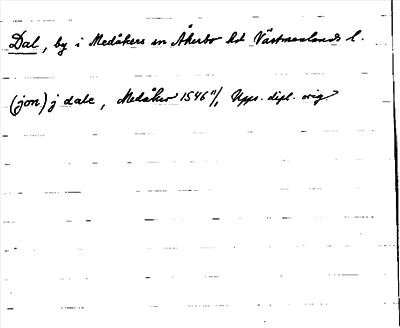 Dal, by i Medåkers sn Åkerbo hd Västmanlands l.
(jon) j dale, Medåker 1546 11/1 Upps. dipl. orig.